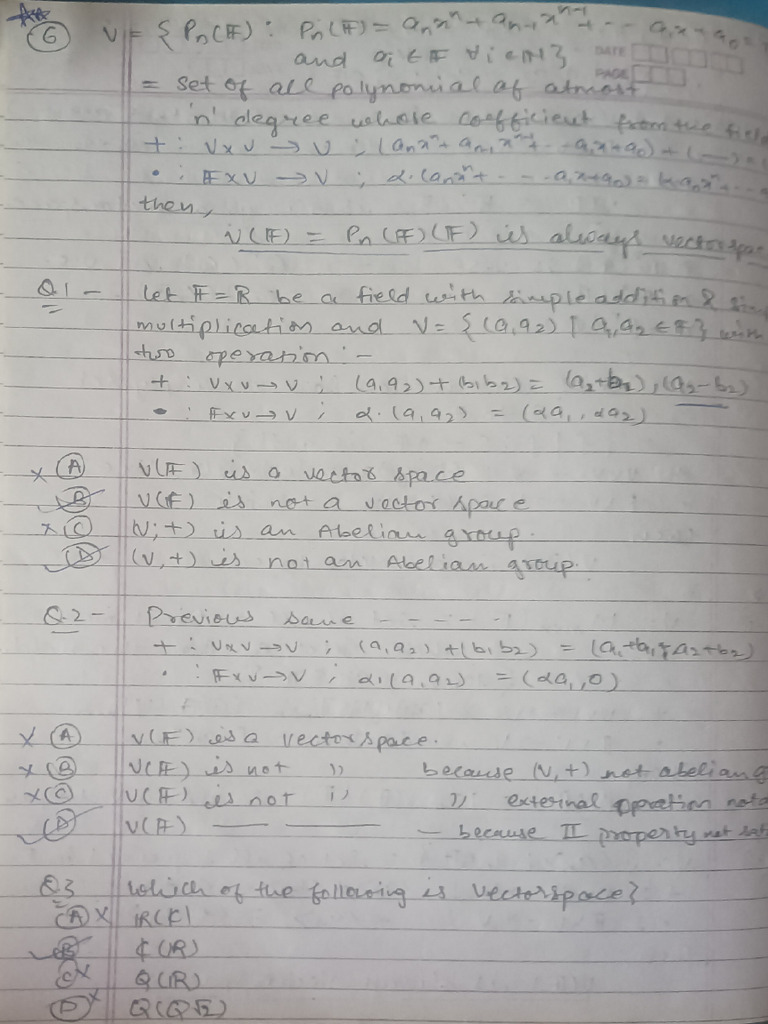 ⑥ V = { Pn(F) : Pn(F) = anxⁿ + an-1xⁿ⁻¹ + -- a1x + a0
and ai ∈ F ∀ i ∈ N}
DATE
PAGE
= set of all polynomial of atmost
'n' degree whose coefficient from the field
+ : V×V → V ; (anxⁿ + an-1xⁿ⁻¹ + -- a1x + a0) + (——) =
• : F×V → V ; α·(anxⁿ + - - - a1x + a0) = anxⁿ + - -
then,
V(F) = Pn(F)(F) is always vector
Q.1 - let F = R be a field with simple addition &
multiplication and V = {(a1a2) | a1,a2 ∈ F} with
two operation :-
+ : V×V → V ; (a1a2) + (b1b2) = (a2+b2), (a2-b2)
• : F×V → V ; α·(a1a2) = (αa1, αa2)
× Ⓐ V(F) is a vector space
Ⓑ V(F) is not a vector space
× Ⓒ (V,+) is an Abelian group.
Ⓓ (V,+) is not an Abelian group.
Q.2 - Previous same - - - - -
+ : V×V → V ; (a1a2) + (b1b2) = a2+b2)
• : F×V → V ; α·(a1a2) = (αa1,0)
× Ⓐ V(F) is a vectorspace.
× Ⓑ V(F) is not '' because (V,+) not abelian
× Ⓒ V(F) is not '' '' external opration
Ⓓ V(F) —— ——— — because II property not
Q3 which of the following is vectorspace?
Ⓐ ×
Ⓑ ¢(R)
Ⓒ × Q(R)
Ⓓ × Q(Q√2)